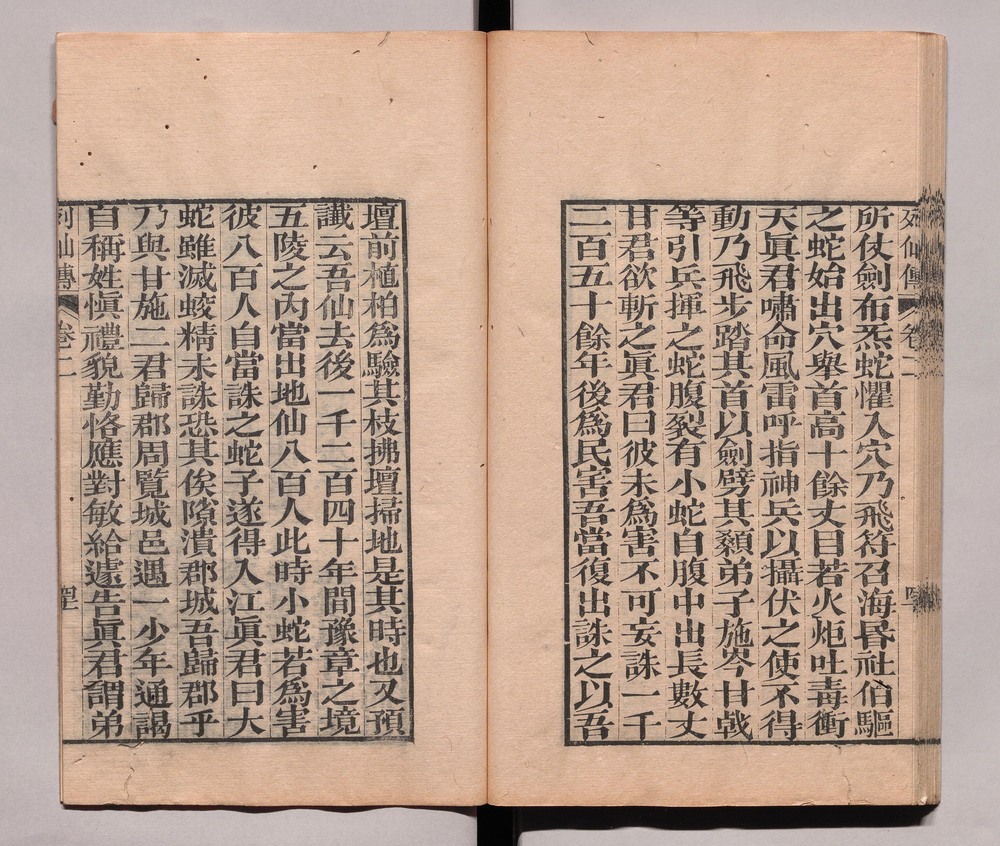 所仗劍布炁蛇懼入穴乃飛符召海昏社伯驅
之蛇始出穴舉首高十餘丈目若火炬吐毒衝
天眞君嘯命風雷呼指神兵以攝伏之使不得
動乃飛步踏其首以劍劈其顙弟子施岑甘戟
等引兵揮之蛇腹裂有小蛇自腹中出長數丈
甘君欲斬之眞君曰彼未爲害不可妄誅一千
二百五十餘年後爲民害吾當復出誅之以吾
壇前植柏爲驗其枝拂壇掃地是其時也又預
讖云吾仙去後一千二百四十年間豫章之境
五陵之內當出地仙八百人此時小蛇若爲害
彼八百人自當誅之蛇子遂得入江眞君曰大
蛇雖滅蛟精未誅恐其俟隙潰郡城吾歸郡乎
乃與甘施二君歸郡周覽城邑遇一少年通謁
自稱姓愼禮貌勤恪應對敏給遽告眞君謂弟
列仙傳 卷二